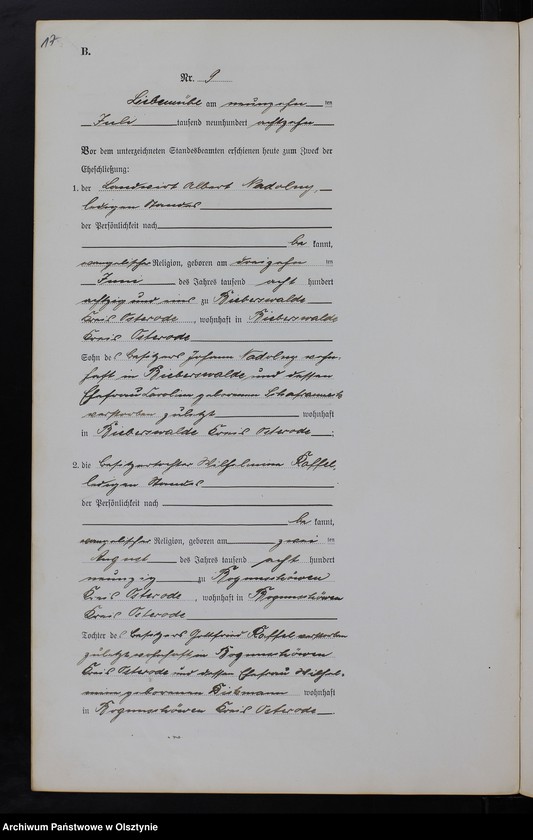 17
B.
Nr. 9
Liebemühl am neunzehn ten
Juli tausend neunhundert achtzehn
Vor dem unterzeichneten Standesbeamten erschienen heute zum Zweck der
Eheschließung:
1. der Landwirt Albert Nadolny,
ledigen Standes
der Persönlichkeit nach
be kannt,
evangelischer Religion, geboren am dreizehn ten
Juni des Jahres tausend acht hundert
achtzig und eins zu Bieberswalde
Kreis Osterode, wohnhaft in Bieberswalde
Kreis Osterode
Sohn des Besitzers Johann Nadolny wohn-
haft in Bieberswalde und dessen
Ehefrau geborenen
verstorben zuletzt wohnhaft
in Bieberswalde Kreis Osterode;
2. die Besitzertochter Wilhelmine
ledigen Standes
der Persönlichkeit nach
be kannt,
evangelischer Religion, geboren am zwei ten
August des Jahres tausend acht hundert
neunzig zu
Kreis Osterode, wohnhaft in
Kreis Osterode
Tochter des Besitzers Gottfried verstorben
zuletzt wohnhaft in
Kreis Osterode und dessen Ehefrau Wilhel-
mine geborenen wohnhaft
in Kreis Osterode
Archiwum Państwowe w Olsztynie